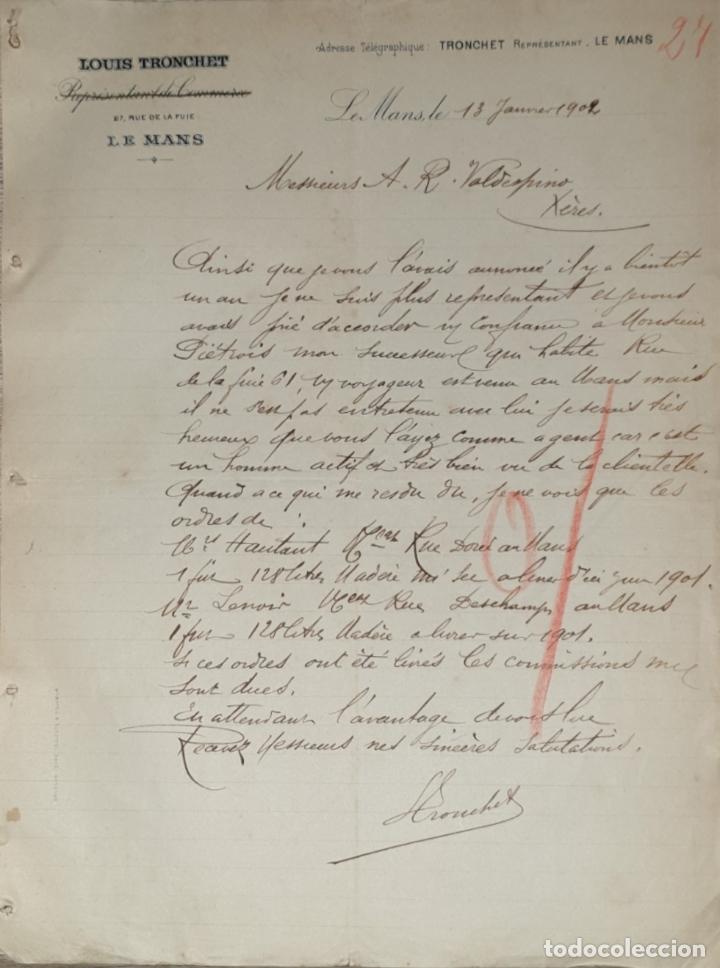 Adresse Télégraphique: TRONCHET REPRÉSENTANT. LE MANS
27
LOUIS TRONCHET
Représentant de Commerce
87, RUE DE LA FUIE
LE MANS
Le Mans, le 13 Janvier 1902
Messieurs A. R. Valdespino
Xérès.
Ainsi que je vous l'avais annoncé il y a bientôt
un an je ne suis plus représentant et je vous
avais prié d'accorder vy confiance à Monsieur
Piétrois mon successeur qui habite Rue
de la fuie 61, vy voyageur est venu au Mans mais
il ne s'est pas entretenu avec lui je serais très
heureux que vous l'ayez comme agent car c'est
un homme actif et très bien vu de la clientelle.
Quand a ce qui me reste du, je ne vois que les
ordres de :
Mr Hautant Rue Doré au Mans
1 fût 128 litres Madère sec a livrer d'ici juin 1901.
Mr Lenoir Rue Deschamps au Mans
1 fut 128 litres Madère a livrer sur 1901.
Si ces ordres ont été livrés les commissions me
sont dues.
En attendant l'avantage de vous lire
Recevez Messieurs mes sincères salutations.
LTronchet
todocoleccion